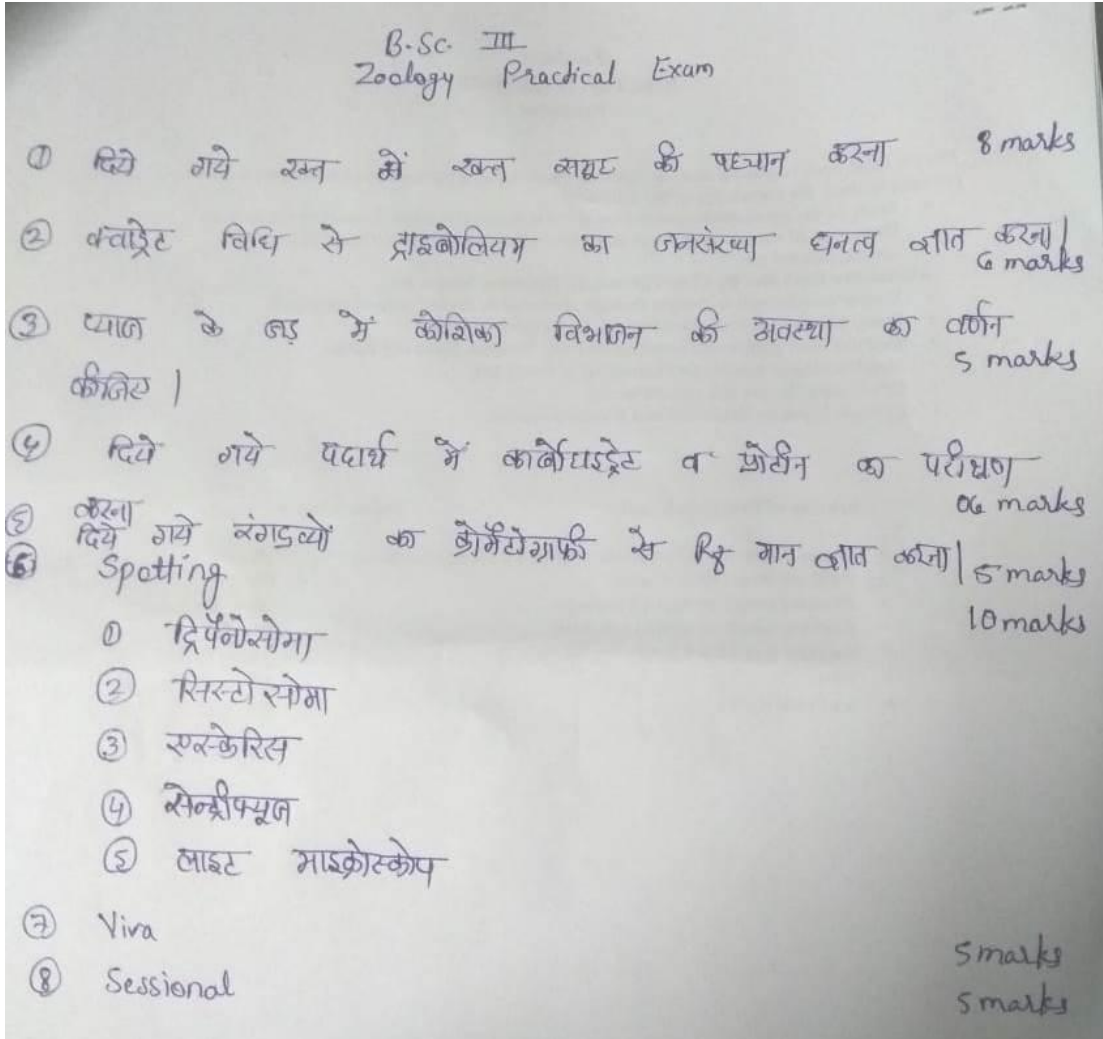 B.Sc. III
Zoology Practical Exam
① दिये गये रक्त में रक्त समूह की पहचान करना 8 marks
② क्वाड्रेट विधि से ट्राइबोलियम का जनसंख्या घनत्व ज्ञात करना|
6 marks
③ प्याज के जड़ में कोशिका विभाजन की अवस्था का वर्णन
5 marks
कीजिए |
④ दिये गये पदार्थ में कार्बोहाइड्रेट व प्रोटीन का परीक्षण
06 marks
करना
⑤ दिये गये रंगद्रव्यों का क्रोमैटोग्राफी से Rf मान ज्ञात करना| 5 marks
⑥ Spotting
10 marks
① ट्रिपैनोसोमा
② सिस्टोसोमा
③ एस्केरिस
④ सेन्ट्रीफ्यूज
⑤ लाइट माइक्रोस्कोप
⑦ Viva
5 marks
⑧ Sessional
5 marks